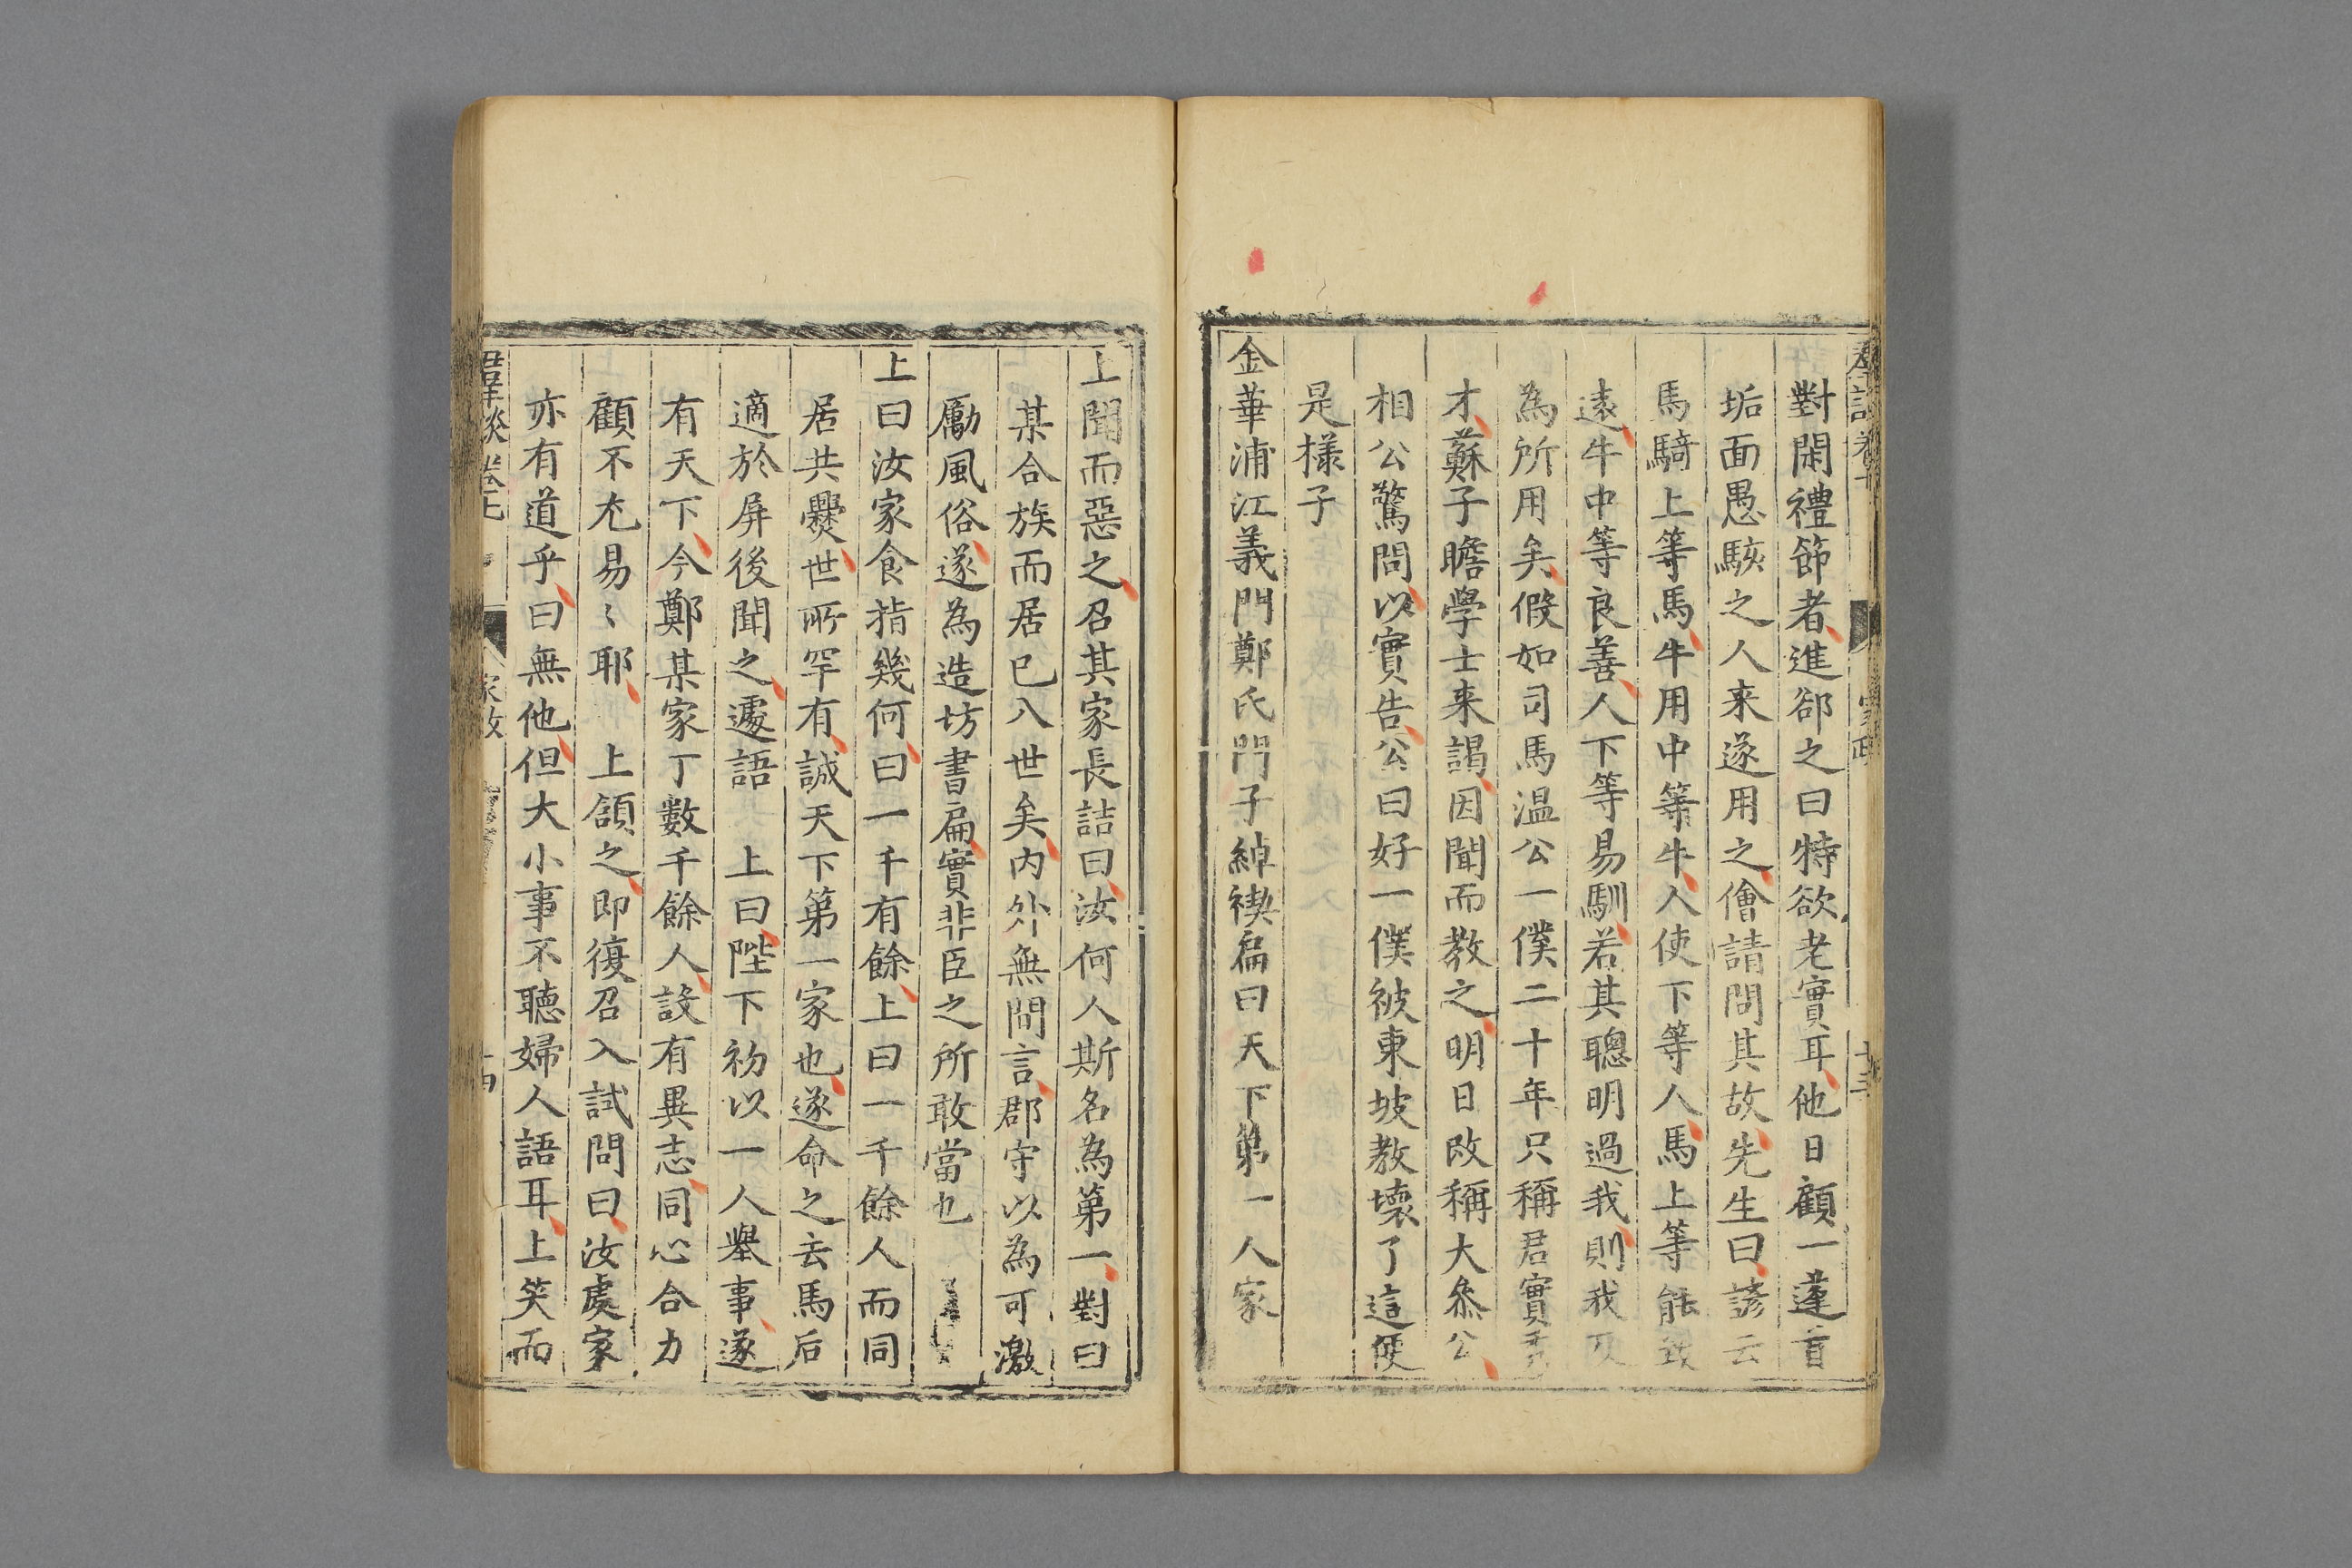 對閑禮節者進郤之曰特欲老實耳他日顧一蓬首
垢面愚騃之人来遂用之僧請問其故先生曰諺云
馬騎上等馬牛用中等牛人使下等人馬上等能致
遠牛中等良善人下等易馴若其聰明過我則我反
為所用矣假如司馬温公一僕二十年只稱君實秀
才蘇子瞻學士来謁因聞而教之明日改稱大叅公
相公驚問以實告公曰好一僕被東坡教壞了這便
是樣子
金華浦江義門鄭氏門子綽禊扁曰天下第一人家
上聞而惡之召其家長詰曰汝何人斯名為第一對曰
某合族而居已八世矣内外無間言郡守以為可激
勵風俗遂為造坊書扁實非臣之所敢當也
上曰汝家食指幾何曰一千有餘上曰一千餘人而同
居共爨世所罕有誠天下第一家也遂命之去馬后
適於屏後聞之遽語 上曰陛下初以一人舉事遂
有天下今鄭某家丁數千餘人設有異志同心合力
顧不尤易〻耶 上頷之即復召入試問曰汝處家
亦有道乎曰無他但大小事不聽婦人語耳上笑而
家教